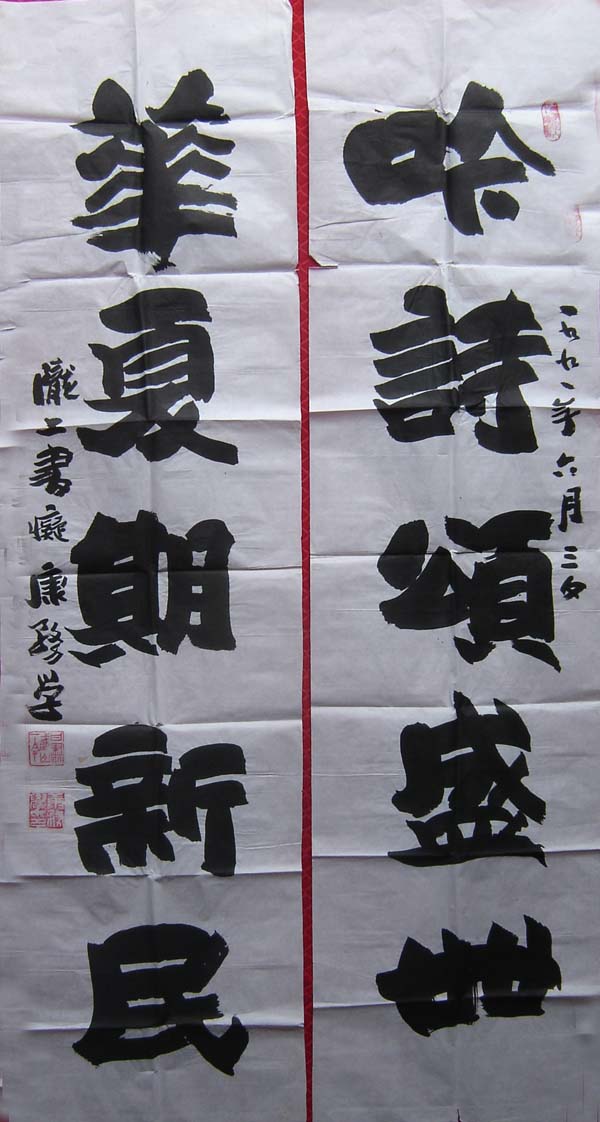 吟詩頌盛世
一九九一年六月三日
華夏期新民
隴上書癡康務学